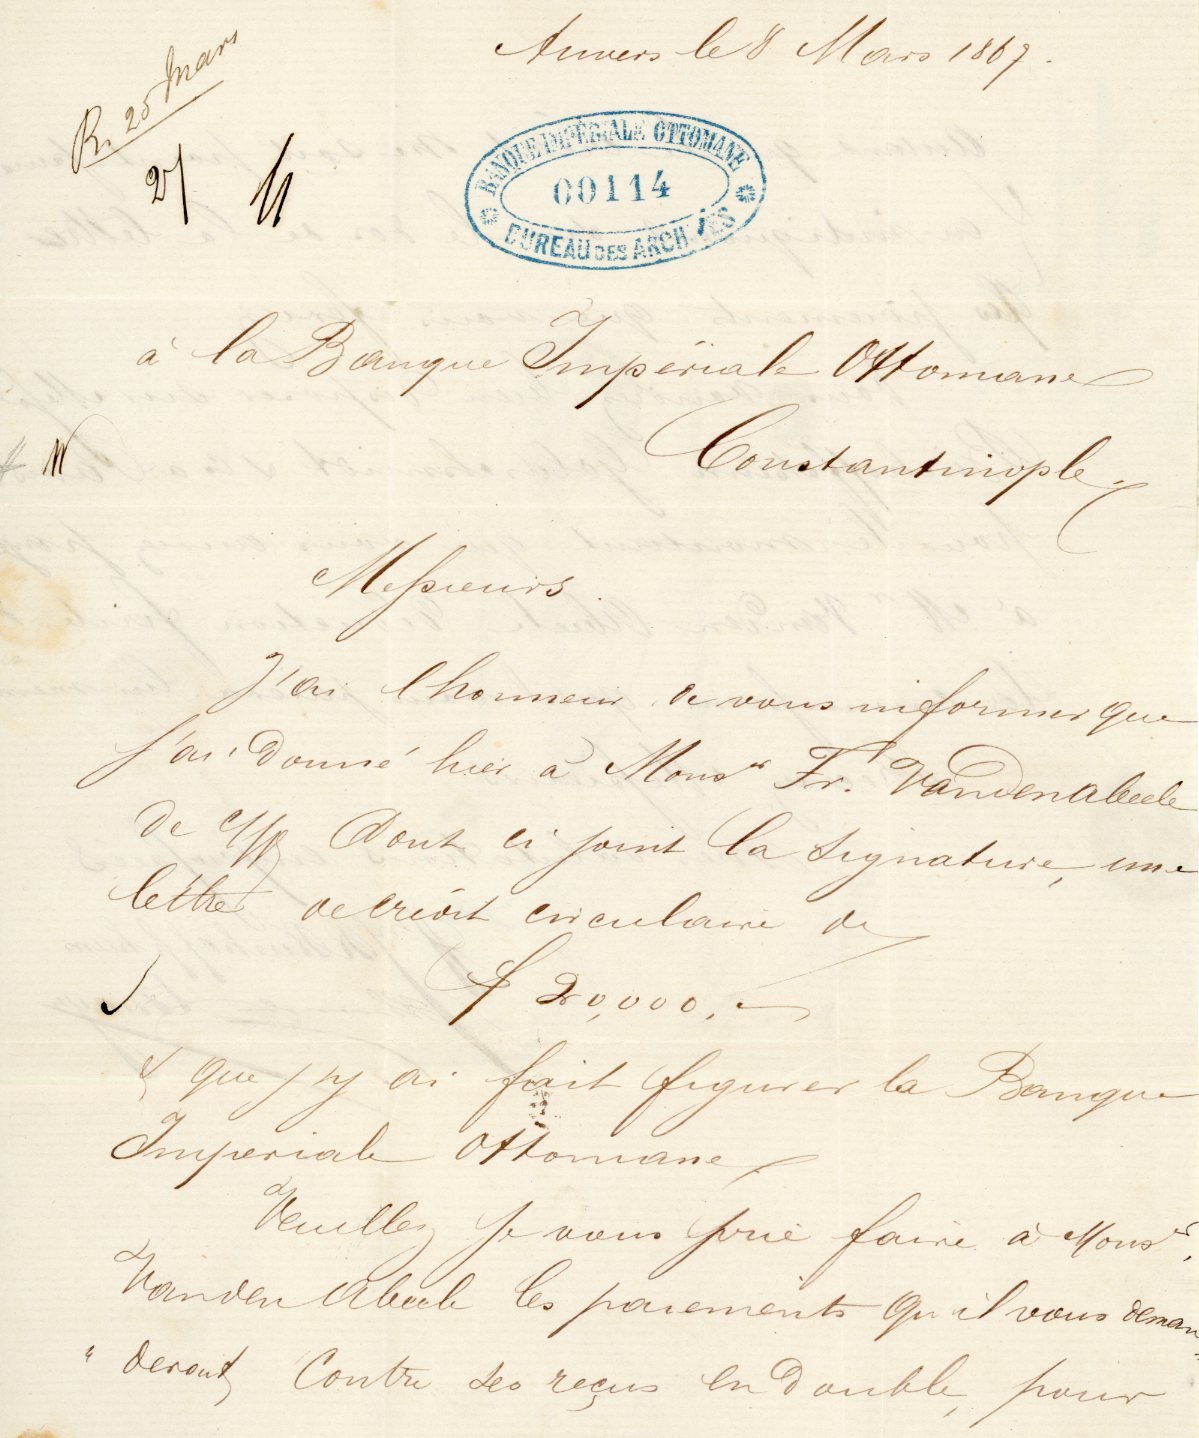 Anvers le 8 Mars 1867.
R. 25 Mars
27
BANQUE IMPÉRIALE OTTOMANE
00114
BUREAU DES ARCHIVES
à la Banque Impériale Ottomane
Constantinople.
Messieurs
J'ai l'honneur de vous informer que
j'ai donné hier à Mons.r Fr. Vandenabeele
de c/ dont ci joint la signature, une
lettre de crédit circulaire de
£ 20,000.
& que j'y ai fait figurer la Banque
Imperiale Ottomane.
Veuillez je vous prie faire à Mons.r
Vanden Abeele les paiements qu'il vous deman
" deront, contre ses reçus en double, pour